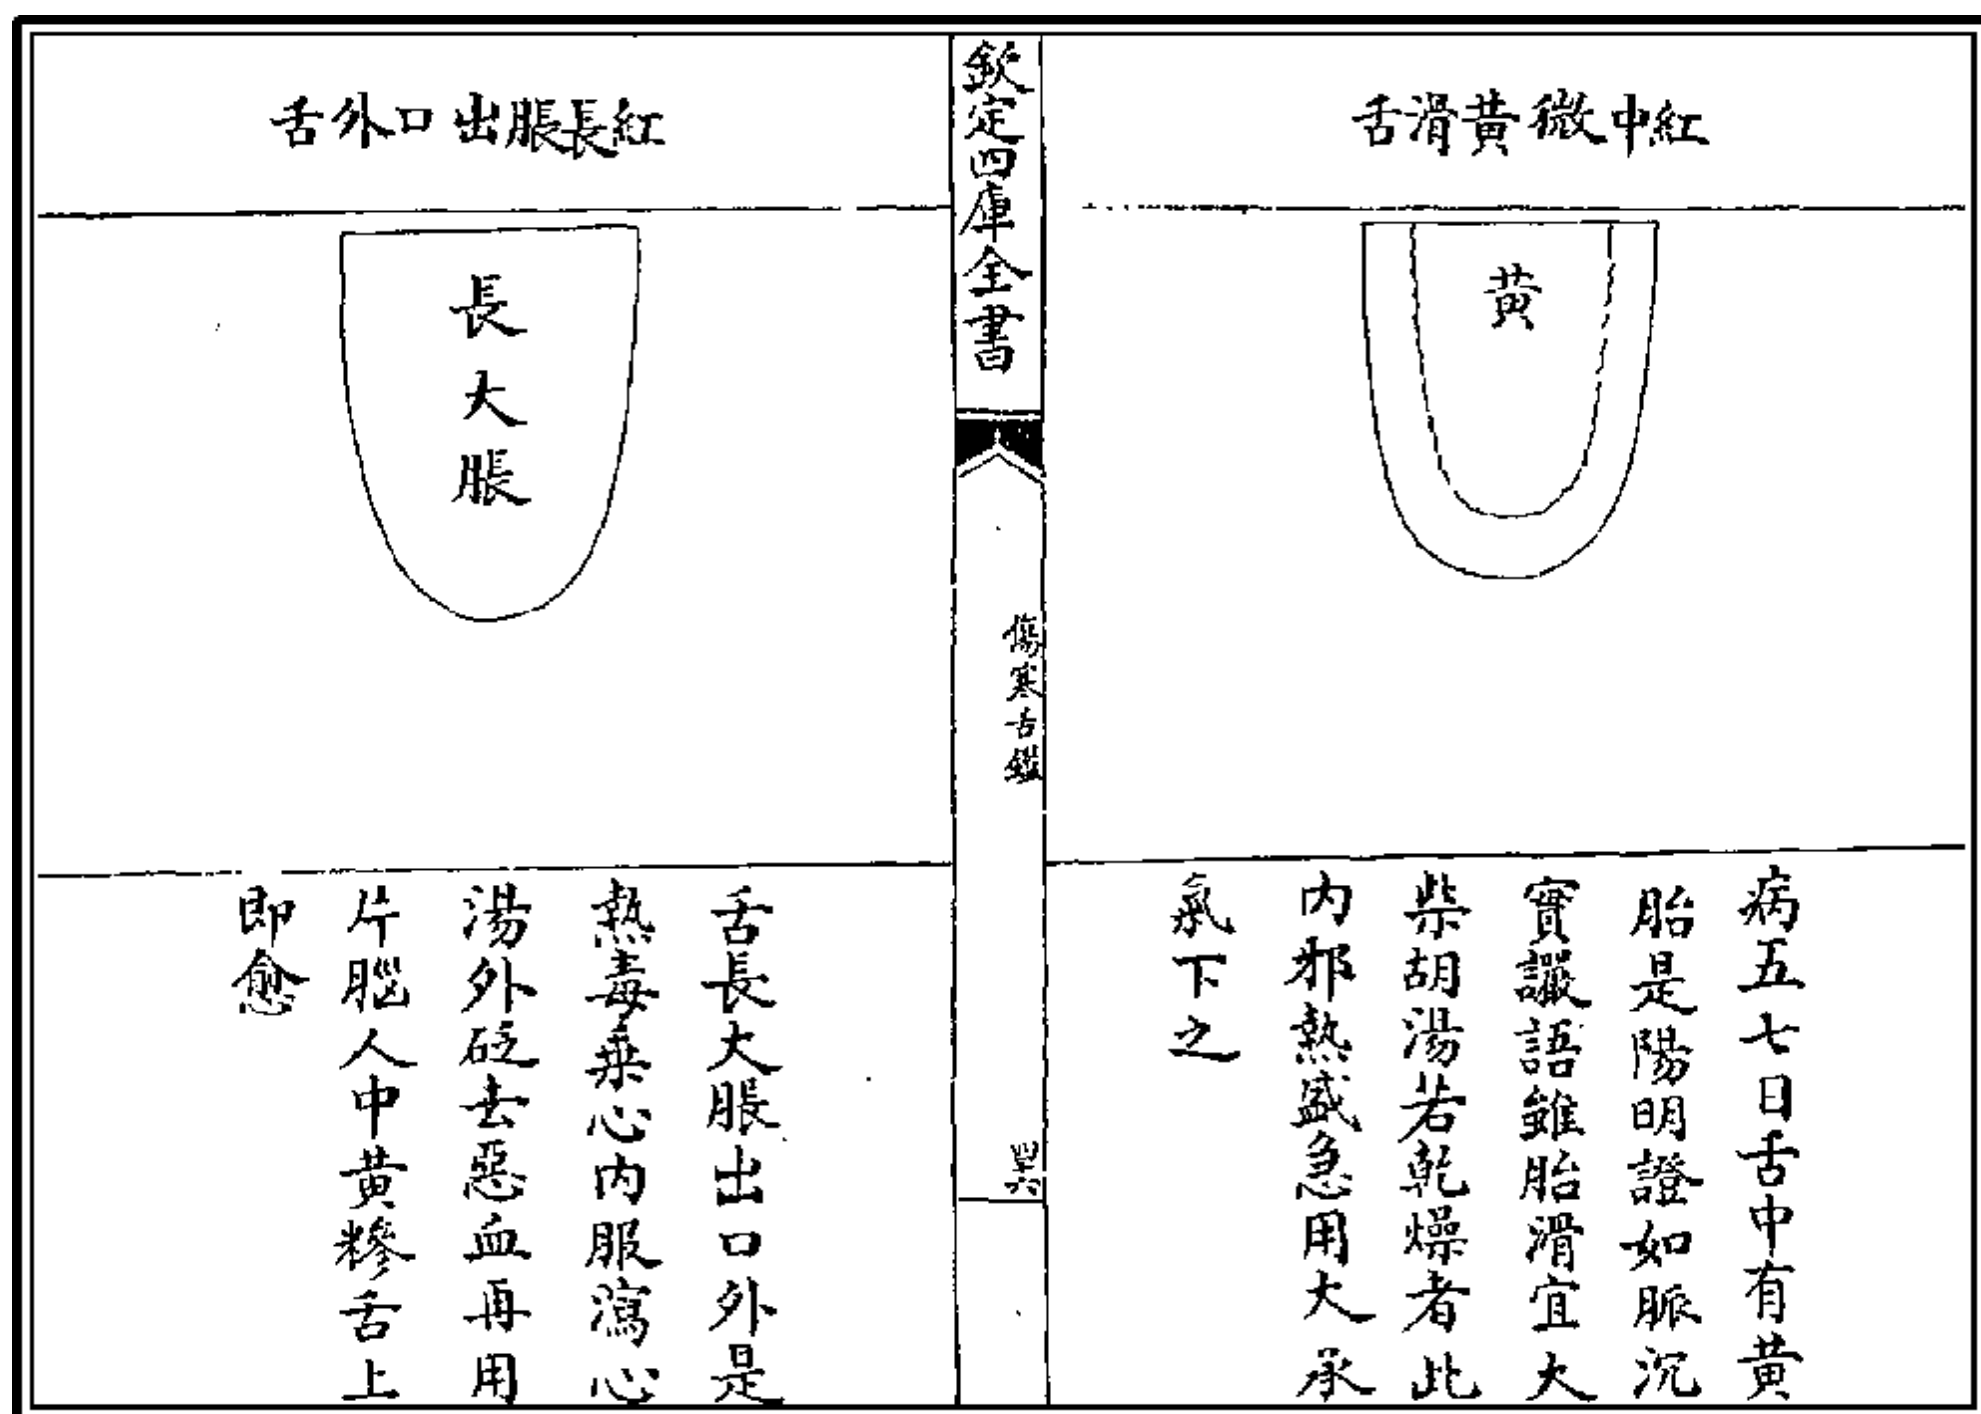 紅中微黃滑舌
黃
病五七日舌中有黃
胎是陽明證如脈沉
實讝語雖胎滑宜大
柴胡湯若乾燥者此
内邪熱盛急用大承
氣下之
欽定四庫全書
傷寒舌鑑
四十六
紅長脹出口外舌
長大脹
舌長大脹出口外是
熱毒乗心内服瀉心
湯外砭去惡血再用
片腦人中黃糝舌上
即愈